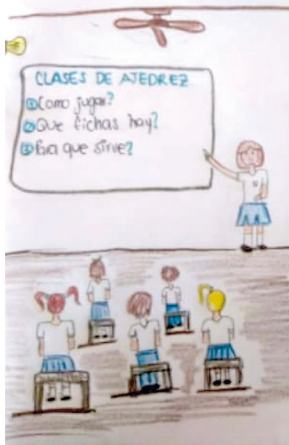 CLASES DE AJEDREZ
① Como jugar?
② Que fichas hay?
③ Para que sirve?